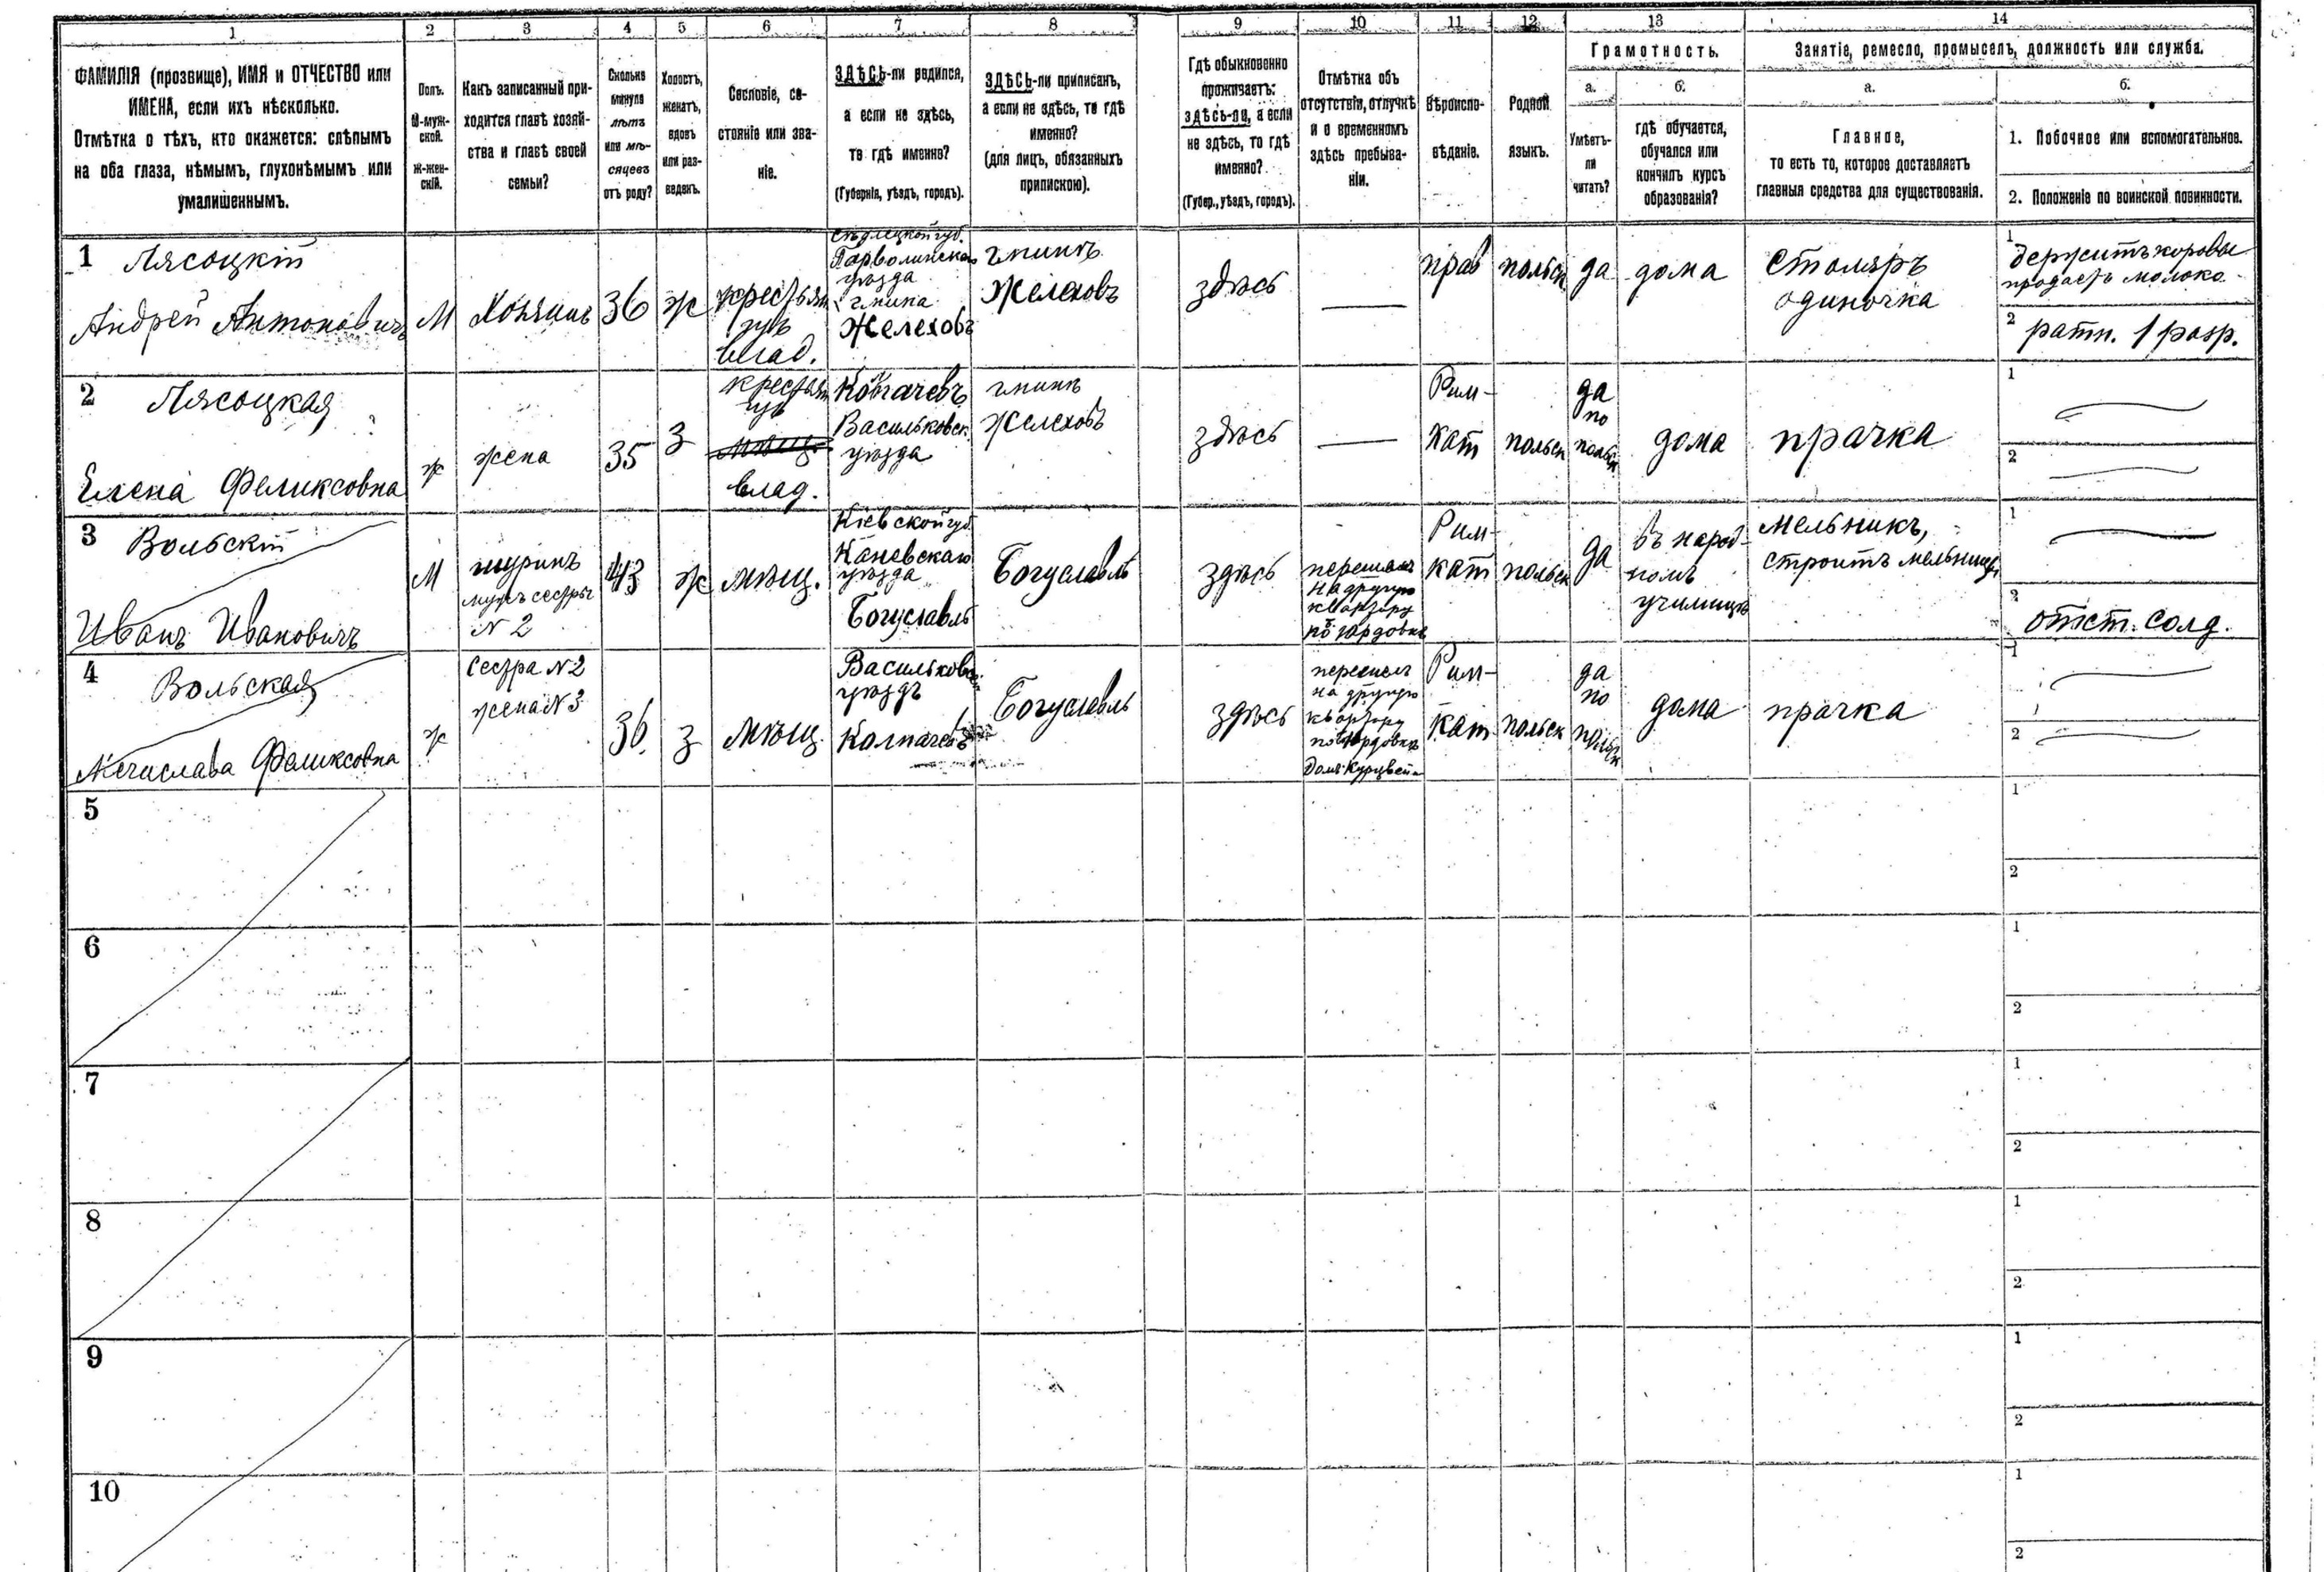 1 2 3 4 5 6 7 8 9 10 11 12 13 14
ФАМИЛІЯ (прозвище), ИМЯ и ОТЧЕСТВО или
ИМЕНА, если ихъ нѣсколько.
Отмѣтка о тѣхъ, кто окажется: слѣпымъ
на оба глаза, нѣмымъ, глухонѣмымъ или
умалишеннымъ.
Полъ.
М-муж-
ской.
Ж-жен-
скій.
Какъ записанный при-
ходится главѣ хозяй-
ства и главѣ своей
семьи?
Сколько
минуло
лѣтъ
или мѣ-
сяцевъ
отъ роду?
Холостъ,
женатъ,
вдовъ
или раз-
веденъ.
Сословіе, со-
стояніе или зва-
ніе.
ЗДѢСЬ-ли родился,
а если не здѣсь,
то гдѣ именно?
(Губернія, уѣздъ, городъ).
ЗДѢСЬ-ли приписанъ,
а если не здѣсь, то гдѣ
именно?
(для лицъ, обязанныхъ
припискою).
Гдѣ обыкновенно
проживаетъ:
здѣсь-ли, а если
не здѣсь, то гдѣ
именно?
(Губер., уѣздъ, городъ).
Отмѣтка объ
отсутствіи, отлучкѣ
и о временномъ
здѣсь пребыва-
ніи.
Вѣроиспо-
вѣданіе.
Родной
языкъ.
Грамотность.
а.
Умѣетъ-
ли
читать?
б.
гдѣ обучается,
обучался или
кончилъ курсъ
образованія?
Занятіе, ремесло, промыселъ, должность или служба.
а.
Главное,
то есть то, которое доставляетъ
главныя средства для существованія.
б.
1. Побочное или вспомогательное.
2. Положеніе по воинской повинности.
1 Лясоцкій
Андрей Антоновичъ
М
Хозяинъ
36
ж
крестьян
изъ
влад.
Сѣдлецкой губ.
Гарволинскаго
уѣзда
гмина
Желеховъ
гминъ
Желеховъ
здѣсь
прав
польск
да
дома
столяръ
одиночка
1
держитъ коровы
продаетъ молоко
2
ратн. 1 разр.
2 Лясоцкая
Елена Феликсовна
ж
жена
35
з
крестьян
изъ
влад.
Васильковск.
уѣзда
гминъ
Желеховъ
здѣсь
Рим-
кат
польск
да
по
польск
дома
прачка
1
2
3 Вольскій
Иванъ Ивановичъ
М
шуринъ
мужъ сестры
N 2
43
ж
мѣщ.
Кіевской губ
Каневскаго
уѣзда
Богуславль
Богуславль
здѣсь
на другую
квартиру
Рим-
кат
польск
да
въ народ-
номъ
училищѣ
мельникъ,
строитъ мельницы
1
2
отст. солд.
4 Вольская
Мечислава Феликсовна
ж
Сестра N 2
жена N 3
36
з
мѣщ
уѣздъ
Богуславль
здѣсь
на другую
квартиру
Рим-
кат
польск
да
по
польск
дома
прачка
1
2
5
1
2
6
1
2
7
1
2
8
1
2
9
1
2
10
1
2